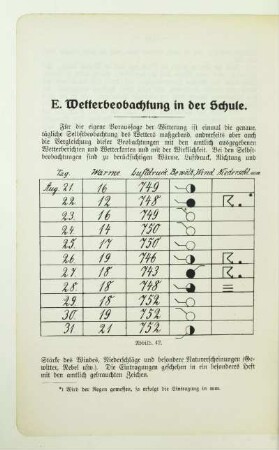 E. Wetterbeobachtung in der Schule.
Für die eigene Voraussage der Witterung ist einmal die genaue,
tägliche Selbstbeobachtung des Wetters maßgebend, andrerseits aber auch
die Vergleichung dieser Beobachtungen mit den amtlich ausgegebenen
Wetterberichten und Wetterkarten und mit der Wirklichkeit. Bei den Selbst-
beobachtungen sind zu berücksichtigen Wärme, Luftdruck, Richtung und
Tag Wärme Luftdruck Bewölk. Wind Niederschl. mm
Aug. 21 16 749 *)
22 12 748
23 16 749
24 14 750
25 17 750
26 19 746
27 18 743
28 18 748
29 18 752
30 19 752
31 21 752
Abbild. 42.
Stärke des Windes, Niederschläge und besondere Naturerscheinungen (Ge-
witter, Nebel usw.). Die Eintragungen geschehen in ein besonderes Heft
mit den amtlich gebrauchten Zeichen.
*) Wird der Regen gemessen, so erfolgt die Eintragung in mm.